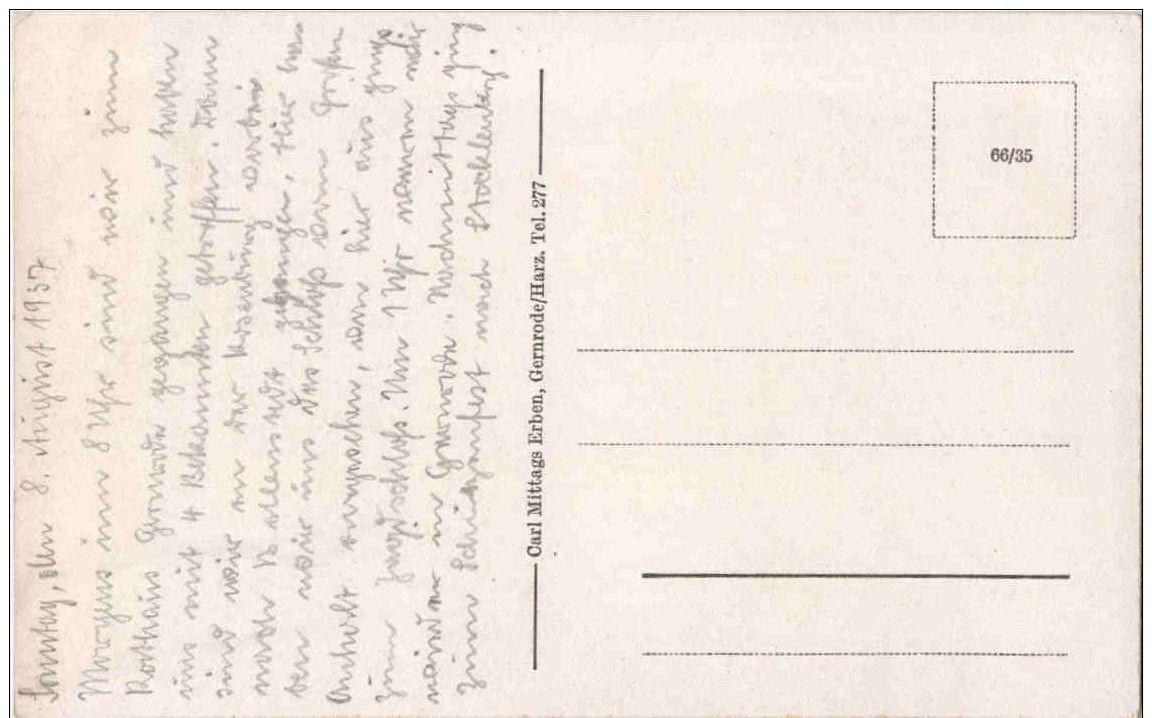 Sonntag, den 8. August 1937
Morgens um 8 Uhr sind wir zum
Rathaus Gernrode gegangen und haben
uns mit 4 Bekannten getroffen. Dann
sind wir an der vorbei
nach gegangen, hier ha-
ben wir uns das Schloß vom Fürsten
Anhalt angesehen, von hier aus gings
zum Jagdschloß. Um 1 Uhr waren wir
wieder in Gernrode. Nachmittags ging
zum Schützenfest nach Stecklenberg.
Carl Mittags Erben, Gernrode/Harz. Tel. 277
66/35